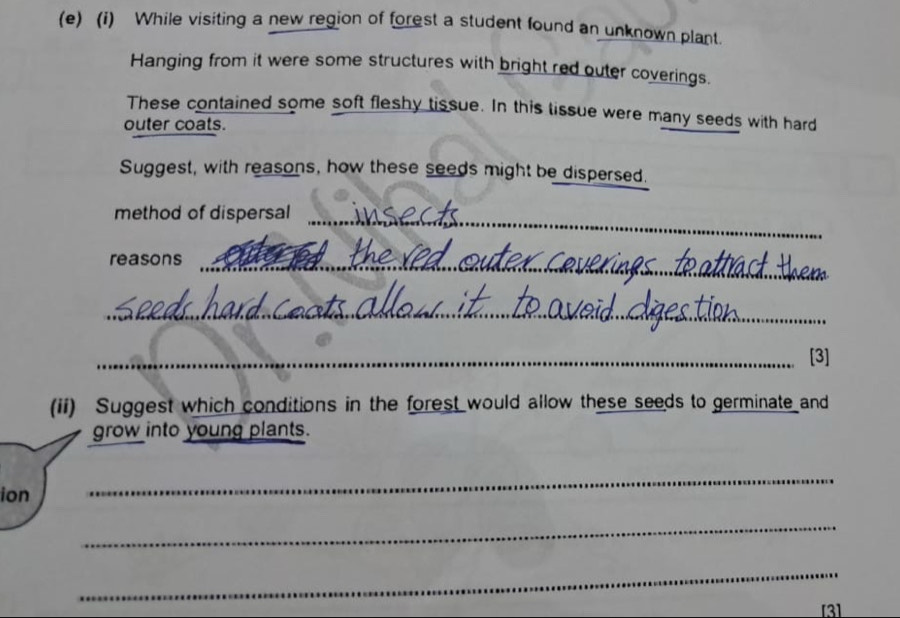 (e) (i) While visiting a new region of forest a student found an unknown plant.
Hanging from it were some structures with bright red outer coverings.
These contained some soft fleshy tissue. In this tissue were many seeds with hard
outer coats.
Suggest, with reasons, how these seeds might be dispersed.
method of dispersal insects
reasons the red outer coverings to attract them
seeds hard coats allow it to avoid digestion
[3]
(ii) Suggest which conditions in the forest would allow these seeds to germinate and
grow into young plants.
ion
[3]